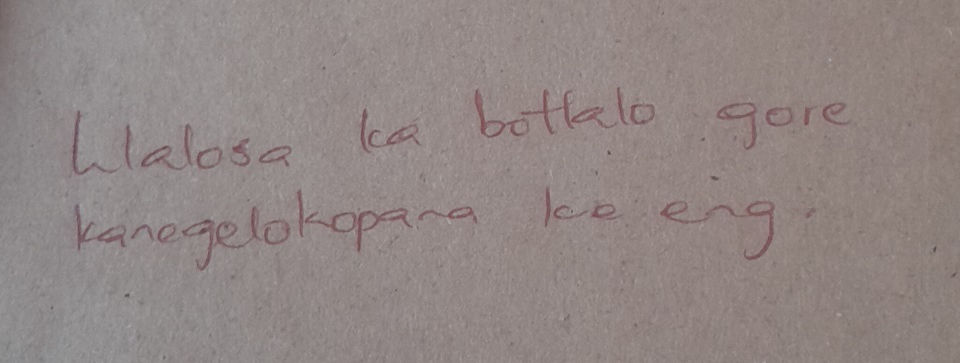 hlalosa ka bottalo gore
kanegelokopana ke eng.